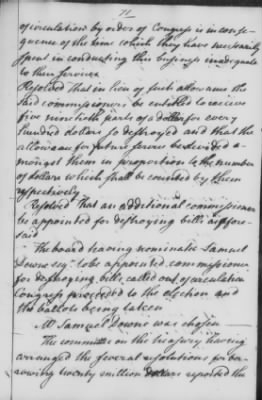 71
of circulation by order of Congress is in conse-
quence of the time which they have necessarily
spent in conducting this business inadequate
to their services
Resolved That in lieu of such allowance the
said commissioners be entitled to receive
five ninetieth parts of a dollar for every
hundred dollars so destroyed and that the
allowance for future services be divided a-
mongst them in proportion to the number
of dollars which shall be counted by them
respectively
Resolved That an additional commissioner
be appointed for destroying bills as afore-
said
The board having nominated Samuel
Downe esqr. to be appointed commissioner
for destroying bills called out of circulation
Congress proceeded to the election and
the ballots being taken
Mr Samuel Downe was chosen
The committee on the treasury having
arranged the several resolutions for bor-
rowing twenty million dollars reported the